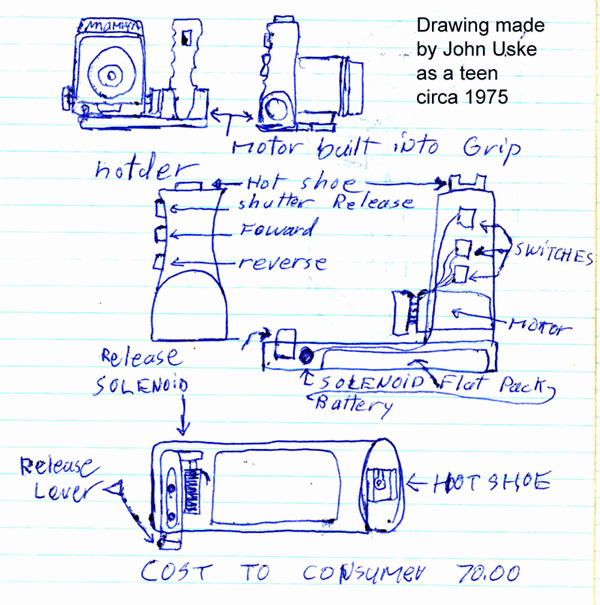 Drawing made
by John Uske
as a teen
circa 1975
MAMIYA
Motor built into Grip
holder
Hot shoe
shutter Release
Foward
reverse
SWITCHES
MOTOR
Release
SOLENOID
SOLENOID Flat Pack
Battery
Release
Lever
HOT SHOE
COST TO CONSUMER 70.00